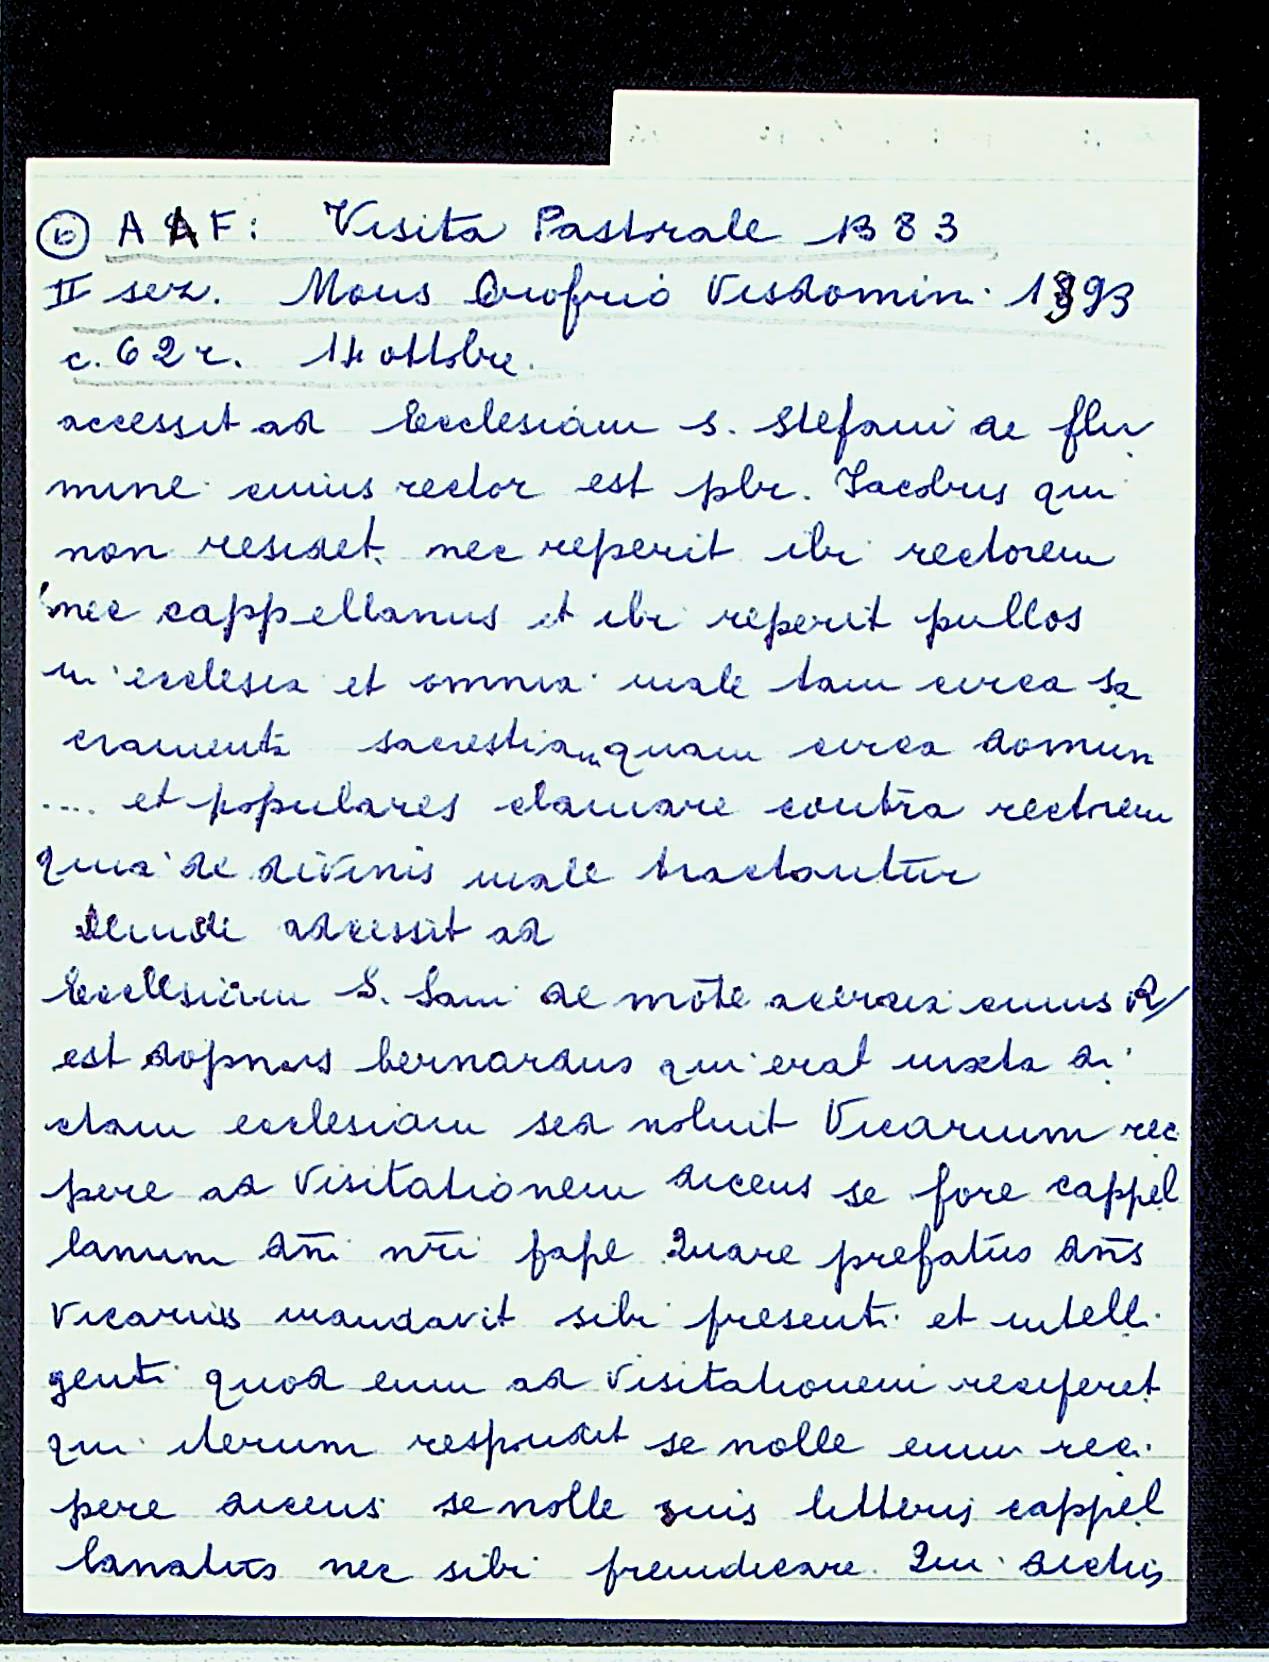 ⑥ A A F: Visita Pastorale 1383
II sez. Mons Onofrio Visdomin. 1393
c. 62 r. 14 ottobre.
accessit ad Ecclesiam S. Stefani de flu
mine cuius rector est pbr. Iacobus qui
non residet. nec reperit ibi rectorem
nec cappellanus et ibi reperit pullos
in ecclesia et omnia male tam circa sa
cramenta sacrestiam quam circa domum
.... et populares clamare contra rectorem
quia de divinis male tractantur
deinde adcessit ad
Ecclesiam S. Sani de mōte acerata cuius R/
est dopnus bernardus qui erat iuxta di
ctam ecclesiam sed noluit Vicarium reci
pere ad visitationem dicens se fore cappel
lanum dn̄i nr̄i pape Quare prefatus dn̄s
Vicarius mandavit sibi presenti et intelli
genti quod eum ad visitationem reciperet
qui iterum respondit se nolle eum reci
pere dicens se nolle suis litteris cappel
lanatus nec sibi preiudicare. Qui dictis